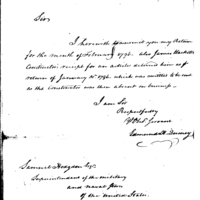 Sir,
I herewith transmit you my Return
for the month of February 1796. also James
Contractor receipt for an article delivered him as
return of January 1796. which was omitted to be sent
as the Contractor was then absent on business.
I am Sir
Respectfully
Yr Obt Servant
Samuel Hodgdon Esqr
Superintendent of the military
and naval stores
of the United States.